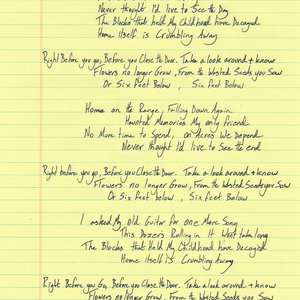 Never thought I'd live to See the Day
The Blocks that held My Childhood have Decayed
Home itself is Crumbling Away
Right Before you go, Before you Close the Door. Take a look around + know
Flowers no longer Grow, From the Wasted Seeds you Sow
Or Six feet Below, Six feet Below
Home on the Range, Falling Down Again
Haunted Memories My only friend
No More time to Spend, on Acres We Depend
Never thought I'd live to See the end
Right before you go, Before you Close the Door. Take a look around + know
Flowers no longer Grow, From the Wasted Seeds you Sow
Or Six feet below, Six feet Below
I asked My old Guitar for one More Song
This Dozers Rolling in It Wont take long
The Blocks that Held My Childhood have Decayed
Home itself is Crumbling Away
Right Before you Go, Before you Close the Door. Take a look around + know
Flowers no longer Grow, From the Wasted Seeds you Sow